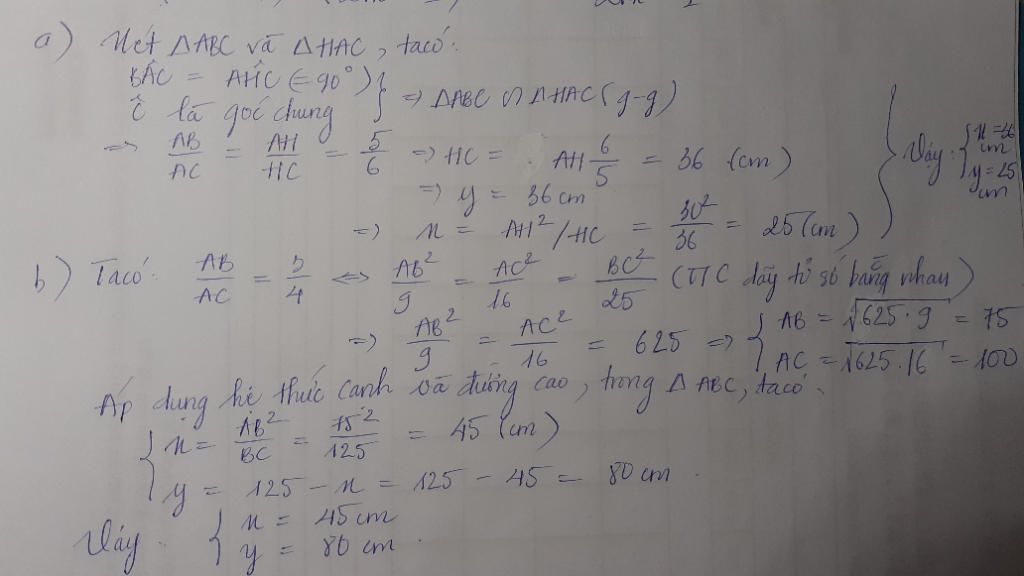 a) Xét ΔABC và ΔHAC, ta có:
BÂC = AĤC (=90°)
Ĉ là góc chung } => ΔABC ∽ ΔHAC (g-g)
=> AB/AC = AH/HC = 5/6 => HC = AH 6/5 = 36 (cm)
=> y = 36 cm
=> x = AH²/HC = 30²/36 = 25 (cm)
Vậy: { y = 25 cm
b) Ta có: AB/AC = 3/4 <=> AB²/9 = AC²/16 = BC²/25 (T/C dãy tỉ số bằng nhau)
=> AB²/9 = AC²/16 = 625 => { AB = √625.9 = 75
AC = √625.16 = 100
Áp dụng hệ thức cạnh và đường cao, trong ΔABC, ta có:
{ x = AB²/BC = 75²/125 = 45 (cm)
y = 125 - x = 125 - 45 = 80 cm.
Vậy: { x = 45 cm
y = 80 cm.